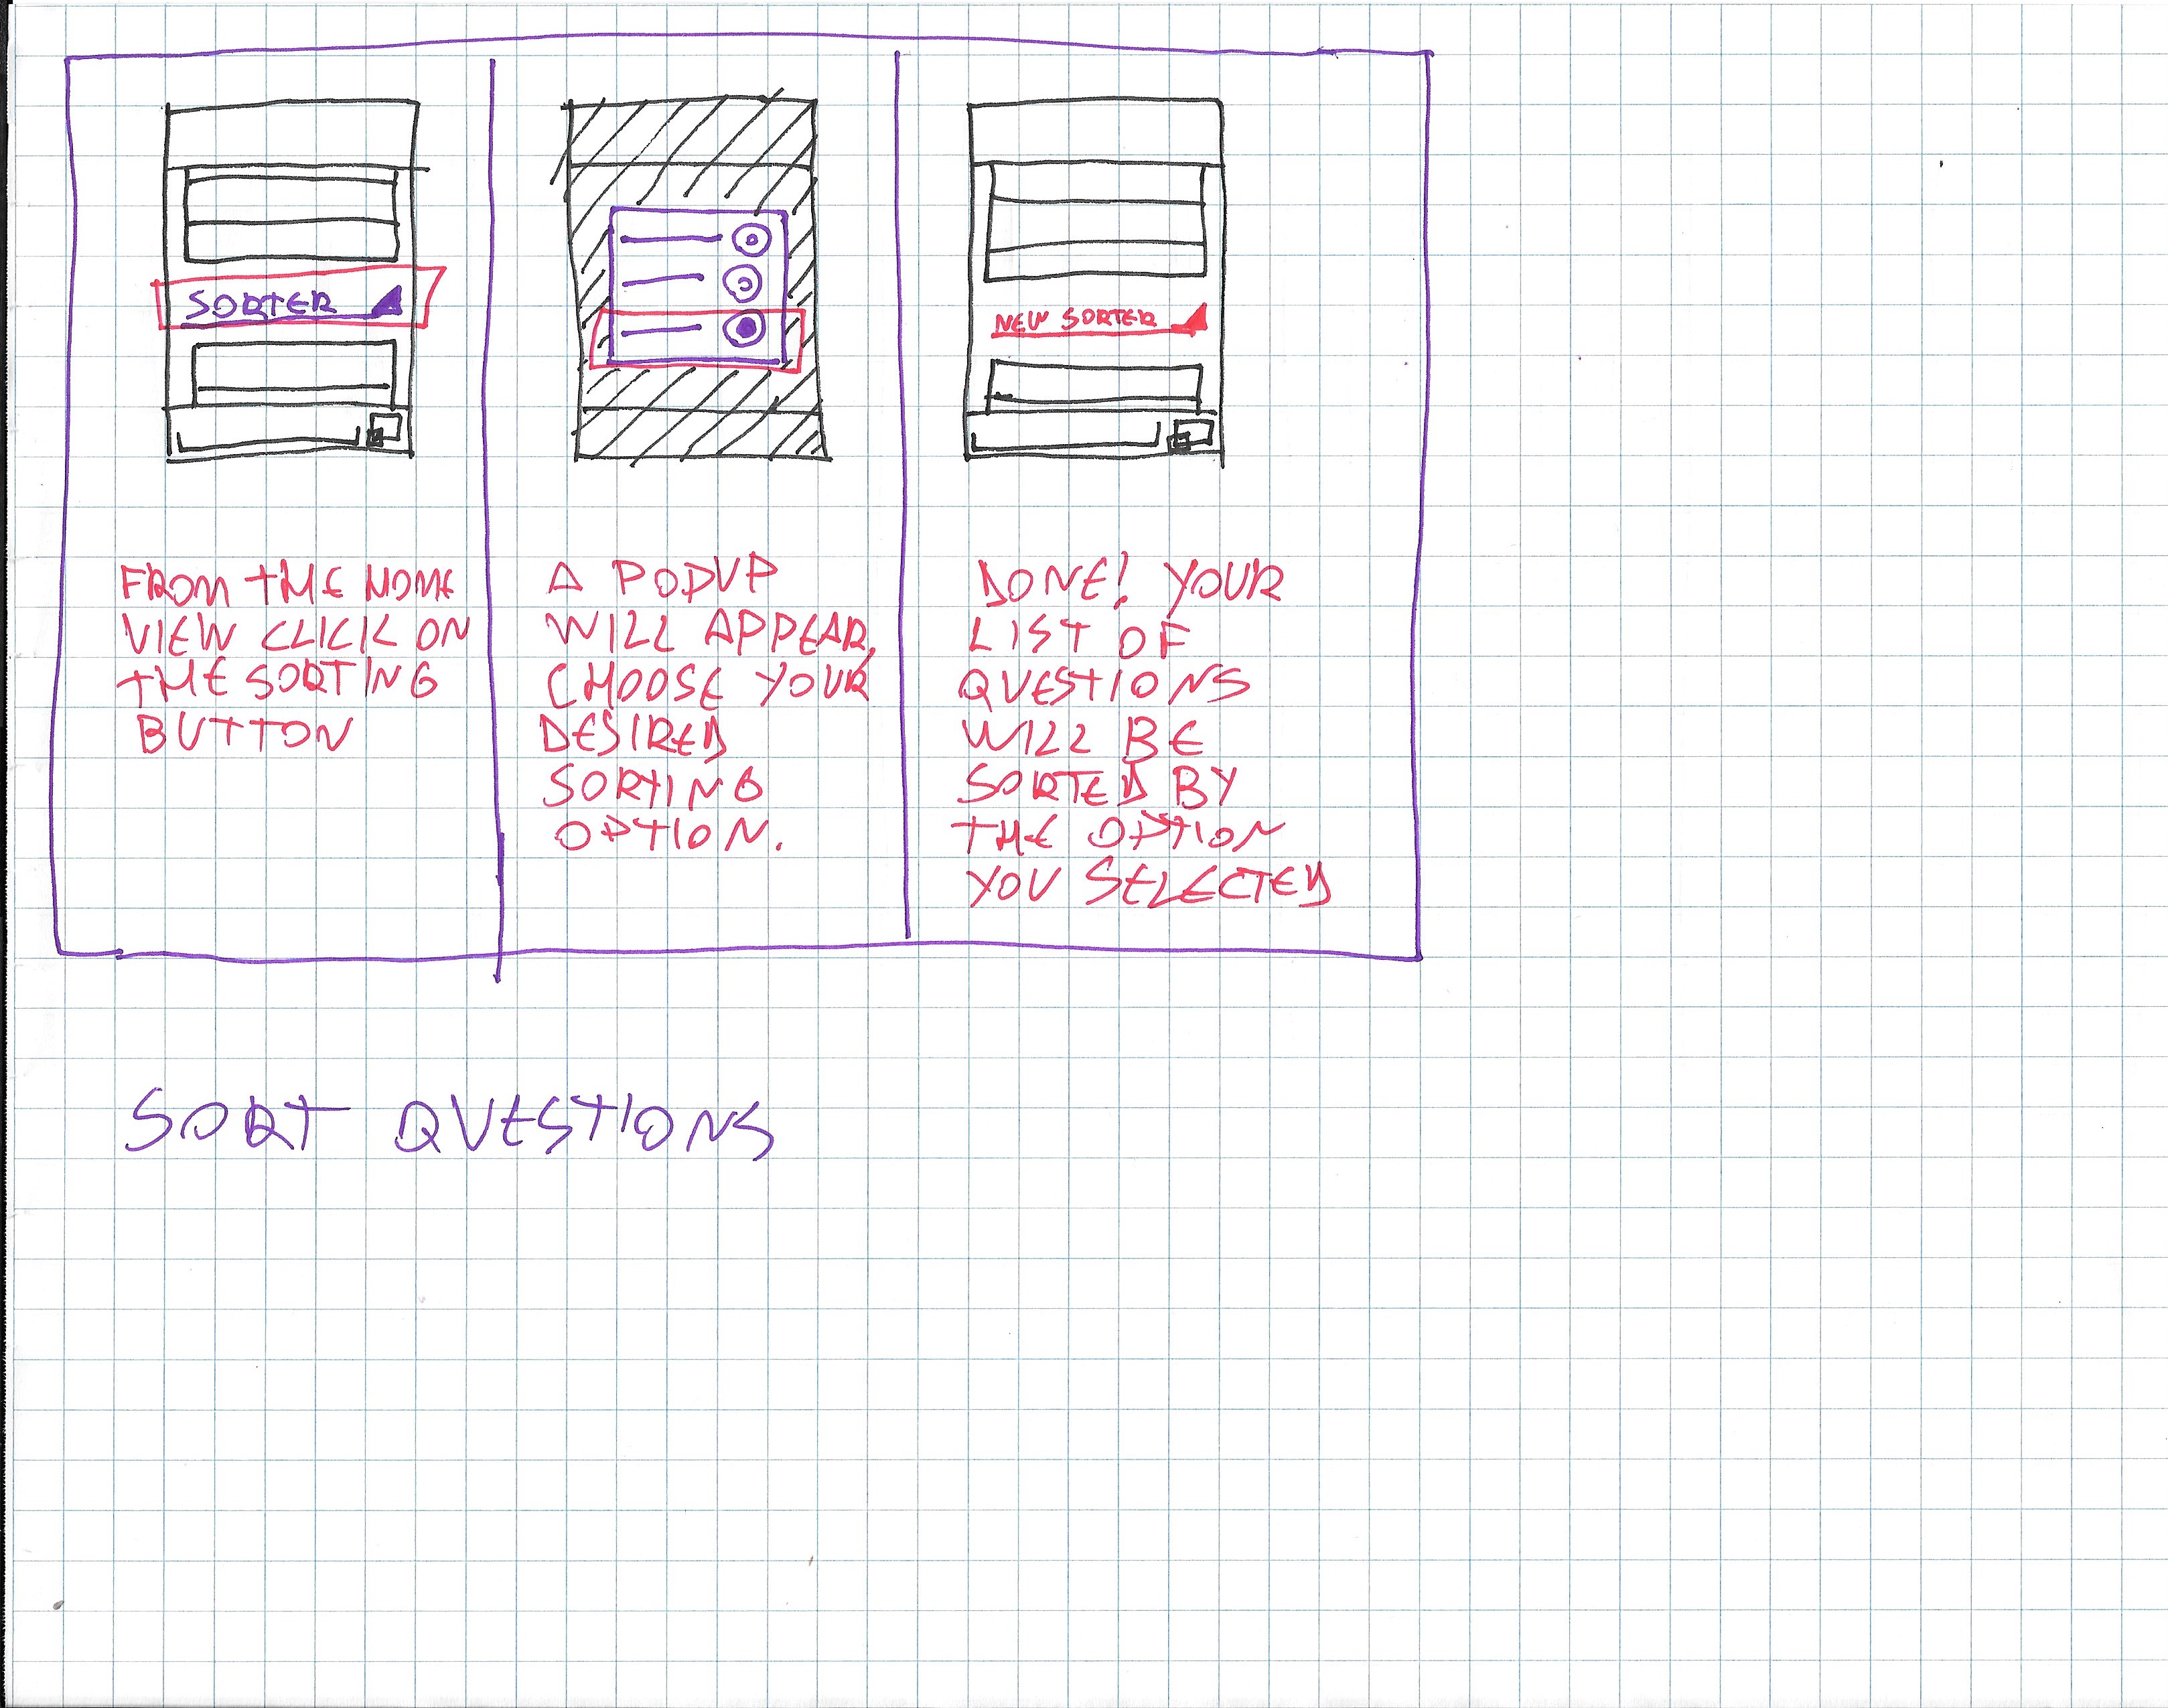 SORTER
NEW SORTER
FROM THE HOME
VIEW CLICK ON
THE SORTING
BUTTON
A POPUP
WILL APPEAR,
CHOOSE YOUR
DESIRED
SORTING
OPTION.
DONE! YOUR
LIST OF
QUESTIONS
WILL BE
SORTED BY
THE OPTION
YOU SELECTED
SORT QUESTIONS